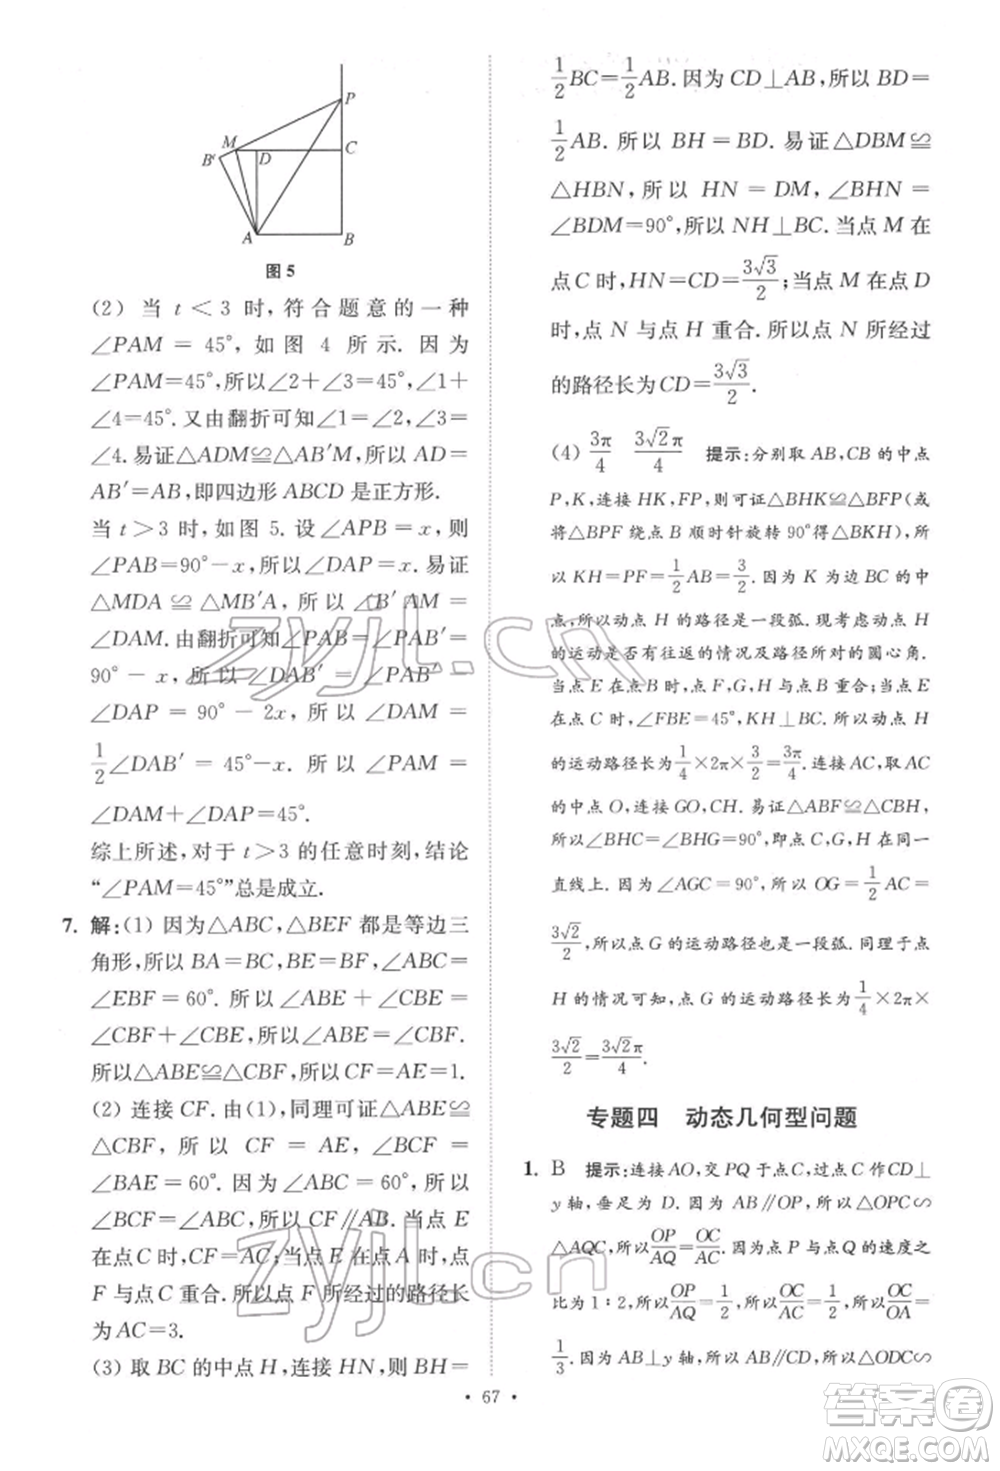 P
M
B′
D
C
A
B
图 5
(2) 当 t＜3 时，符合题意的一种
∠PAM = 45°，如图 4 所示. 因为
∠PAM=45°，所以∠2+∠3=45°，∠1+
∠4=45°. 又由翻折可知∠1=∠2，∠3=
∠4. 易证△ADM≌△AB′M，所以 AD=
AB′=AB，即四边形 ABCD 是正方形.
当 t＞3 时，如图 5. 设∠APB=x，则
∠PAB=90°-x，所以∠DAP=x. 易证
△MDA ≌ △MB′A，所以∠B′AM=
∠DAM. 由翻折可知∠PAB=∠PAB′=
90°-x，所以∠DAB′=∠PAB′-
∠DAP = 90°-2x，所以∠DAM =
1/2∠DAB′ = 45°-x. 所以∠PAM =
∠DAM+∠DAP=45°.
综上所述，对于 t＞3 的任意时刻，结论
“∠PAM=45°”总是成立.
7. 解：(1) 因为△ABC，△BEF 都是等边三
角形，所以 BA=BC，BE=BF，∠ABC=
∠EBF = 60°. 所以∠ABE + ∠CBE =
∠CBF+∠CBE，所以∠ABE=∠CBF.
所以△ABE≌△CBF，所以 CF=AE=1.
(2) 连接 CF. 由(1)，同理可证△ABE≌
△CBF，所以 CF = AE，∠BCF =
∠BAE = 60°. 因为∠ABC = 60°，所以
∠BCF=∠ABC，所以 CF∥AB. 当点 E
在点 C 时，CF=AC；当点 E 在点 A 时，点
F 与点 C 重合. 所以点 F 所经过的路径长
为 AC=3.
(3) 取 BC 的中点 H，连接 HN，则 BH=
1/2BC=1/2AB. 因为 CD⊥AB，所以 BD=
1/2AB. 所以 BH=BD. 易证△DBM≌
△HBN，所以 HN=DM，∠BHN=
∠BDM=90°，所以 NH⊥BC. 当点 M 在
点 C 时，HN=CD=3√3/2；当点 M 在点 D
时，点 N 与点 H 重合. 所以点 N 所经过
的路径长为 CD=3√3/2.
(4) 3π/4 3√2π/4 提示：分别取 AB，CB 的中点
P，K，连接 HK，FP，则可证△BHK≌△BFP(或
将△BPF 绕点 B 顺时针旋转 90°得△BKH)，所
以 KH=PF=1/2AB=3/2. 因为 K 为边 BC 的中
点，所以动点 H 的路径是一段弧. 只要考虑动点 H
的运动是否有往返的情况及路径所对的圆心角.
当点 E 在点 A 时，点 F，G，H 与点 B 重合；当点 E
在点 C 时，∠FBE=45°，KH⊥BC. 所以动点 H
的运动路径长为1/4×2π×3/2=3π/4. 连接 AC，取 AC
的中点 O，连接 GO，CH. 易证△ABF≌△CBH，
所以∠BHC=∠BHG=90°，即点 C，G，H 在同一
直线上. 所以∠AGC=90°，所以 OG=1/2AC=
3√2/2，所以点 G 的运动路径也是一段弧. 同理于点
H 的情况可知，点 G 的运动路径长为1/4×2π×
3√2/2=3√2π/4.
专题四 动态几何型问题
1. B 提示：连接 AO，交 PQ 于点 C，过点 C 作CD⊥
y 轴，垂足为 D. 因为 AB∥OP，所以△OPC∽
△AQC，所以OP/AQ=OC/AC. 因为点 P 与点 Q 的速度之
比为 1∶2，所以OP/AQ=1/2，所以OC/AC=1/2，所以OC/OA=
1/3. 因为 AB⊥y 轴，所以 AB∥CD，所以△ODC∽
• 67 •
zyjl.cn
zyjl.cn
答案圈
MXQE.COM